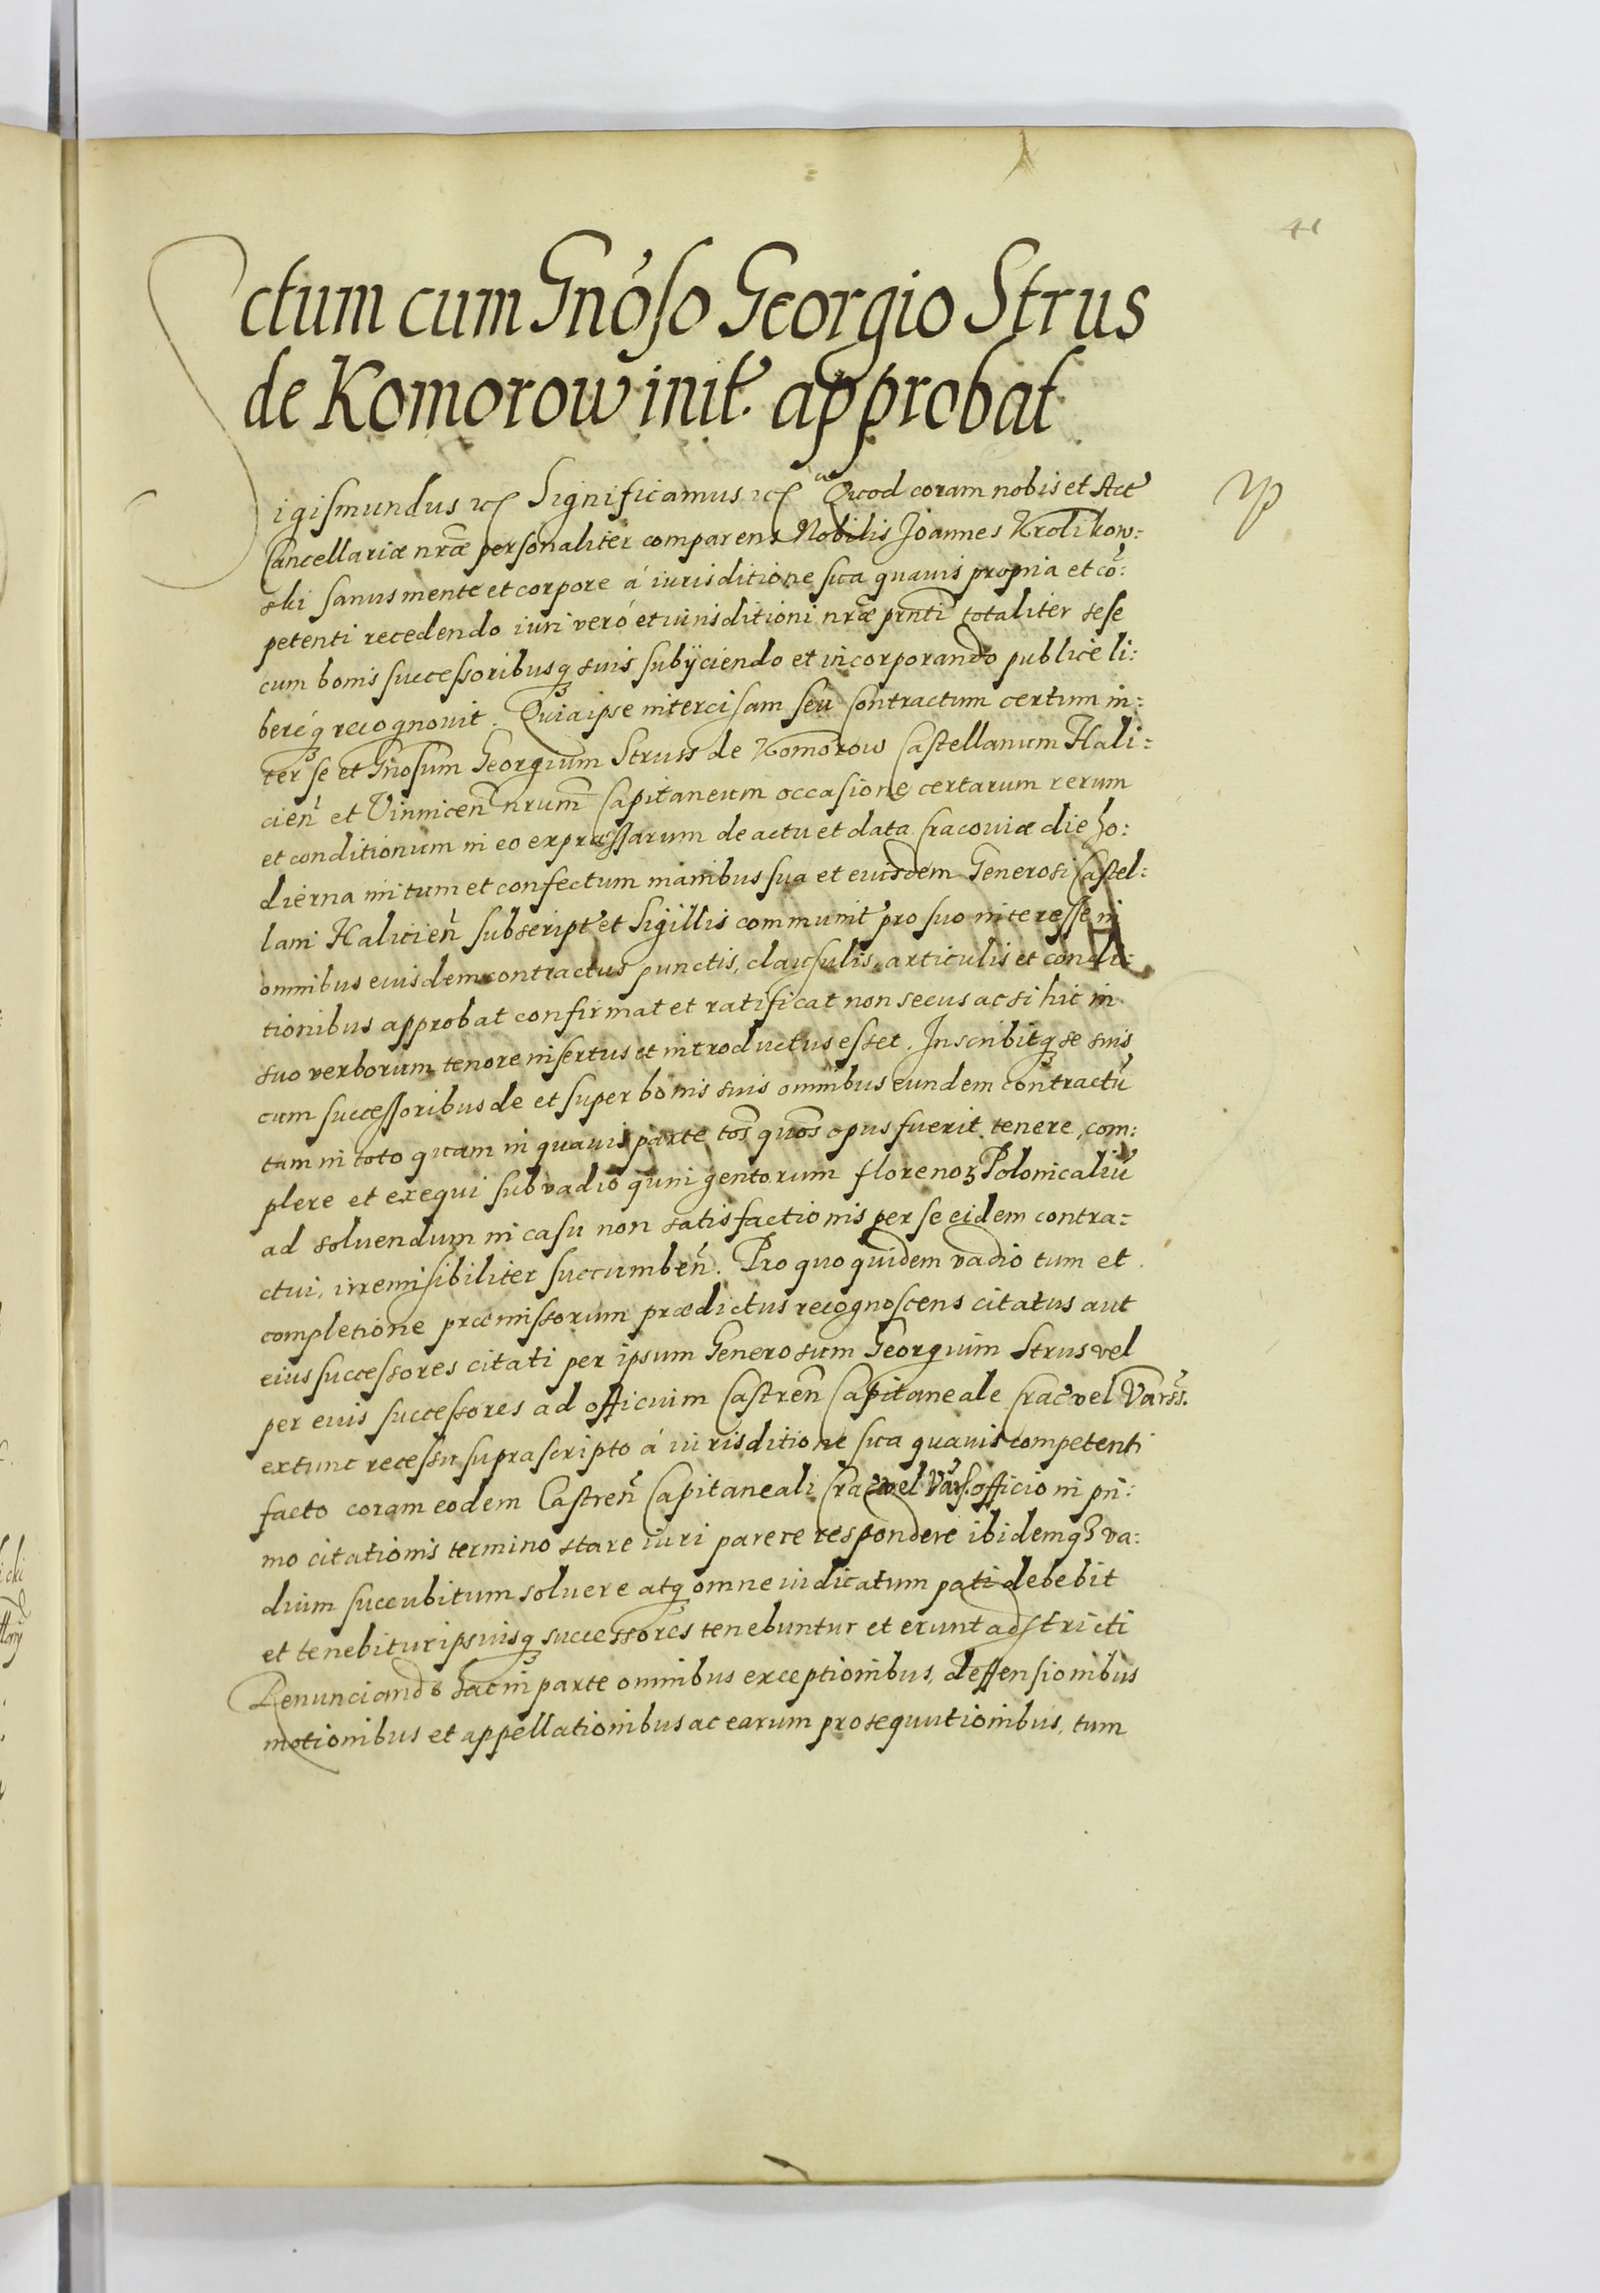 41
ctum cum Gnoso Georgio Strus
de Komorow init. approbat
igismundus etc Significamus etc Quod coram nobis et Act
Cancellariæ nræ personaliter comparens Nobilis Joannes Krolikow:
ski sanus mente et corpore á iurisditione sua quavis propria et cõ:
petenti recedendo iuri veró et iurisditioni nræ prnti totaliter sese
cum bonis successoribusq suis subÿciendo et incorporando publicé li:
beréq recognovit. Quia ipse intercisam seu Contractum certum in:
ter se et Gnosum Georgium Struss de Komorow Castellanum Hali:
cien̄ et Vinnicen̄ nrum̄ Capitaneum occasione certarum rerum
et conditionum in eo expræssarum de actu et data Cracoviæ die ho:
dierna initum et confectum manibus sua et eiusdem Generosi Castel:
lani Halicien̄ subscript et Sigillis communit pro suo interesse in
omnibus eiusdem contractus punctis, clausulis, articulis et condi:
tionibus approbat confirmat et ratificat non secus ac si hic in
suo verborum tenore insertus et introductus esset. Inscribitq se suis
cum successoribus de et super bonis suis omnibus eundem contractũ
tam in toto quam in quavis parte tos̄ quos̄ opus fuerit tenere, com:
plere et exequi sub vadio quingentorum florenoꝝ Polonicaliũ
ad solvendum in casu non satisfactionis per se eidem contra:
ctui, irremisibiliter succumben̄. Pro quo quidem vadio tum et
completione præmissorum prædictus recognoscens citatus aut
eius successores citati per ipsum Generosum Georgium Strus vel
per eius successores ad officium Castren̄ Capitaneale Crac vel Varss.
extunc recessu suprascripto á iurisditione sua quavis competenti
facto coram eodem Castren̄ Capitaneali Crac vel Vars. officio in pri:
mo citationis termino stare iuri parere respondere ibidemqꝫ va:
dium succubitum solvere atq omne iudicatum pati debebit
et tenebitur ipsiusq successores tenebuntur et erunt adstricti
Renunciando hac in parte omnibus exceptionibus, deffensionibus
motionibus et appellationibus ac earum prosequutionibus, tum